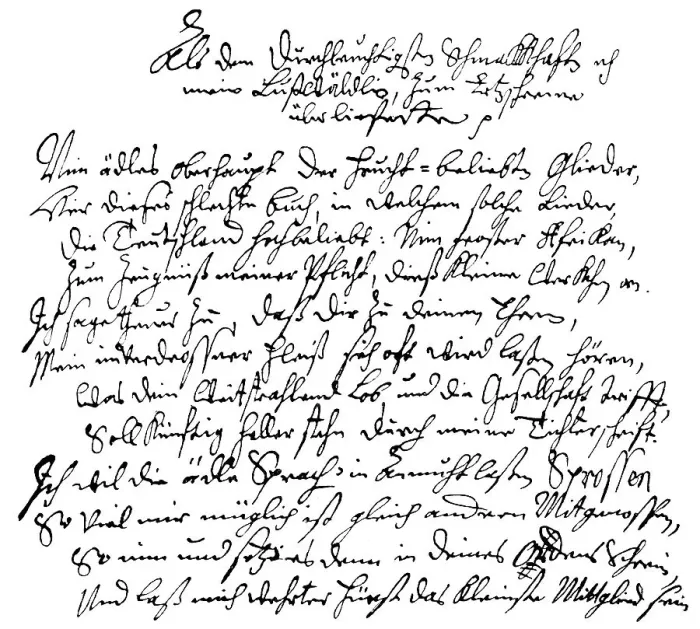 Als dem Durchleuchtigsten Schmakkhaften ich
mein Lustwäldlin, zum Ertzschreine
überlieferte
Nim ädles oberhaupt der frucht=beliebten Glieder,
Hier dieses schlechte buch, in welchem solche Lieder,
die Teutschland hochbeliebt: Nim
Zum Zeugniß meiner Pflicht, dieß kleine Werkchen an.
Ich sage theuer zu, daß dir zu deinen Ehren,
Mein unverdrossner fleiß sich oft wird lassen hören,
Was dein Weitstrahlend Lob, und die Gesellschaft trifft,
Soll künftig heller stehn durch meine Tichterschrift.
Ich wil die ädle Sprach' in Anmuht lassen Sprossen
So viel mir müglich ist gleich andern Mitgenossen,
So nim und setz es denn in deines Ordens Schrein,
Und laß mich wehrter Fürst das kleinste Mittglied sein